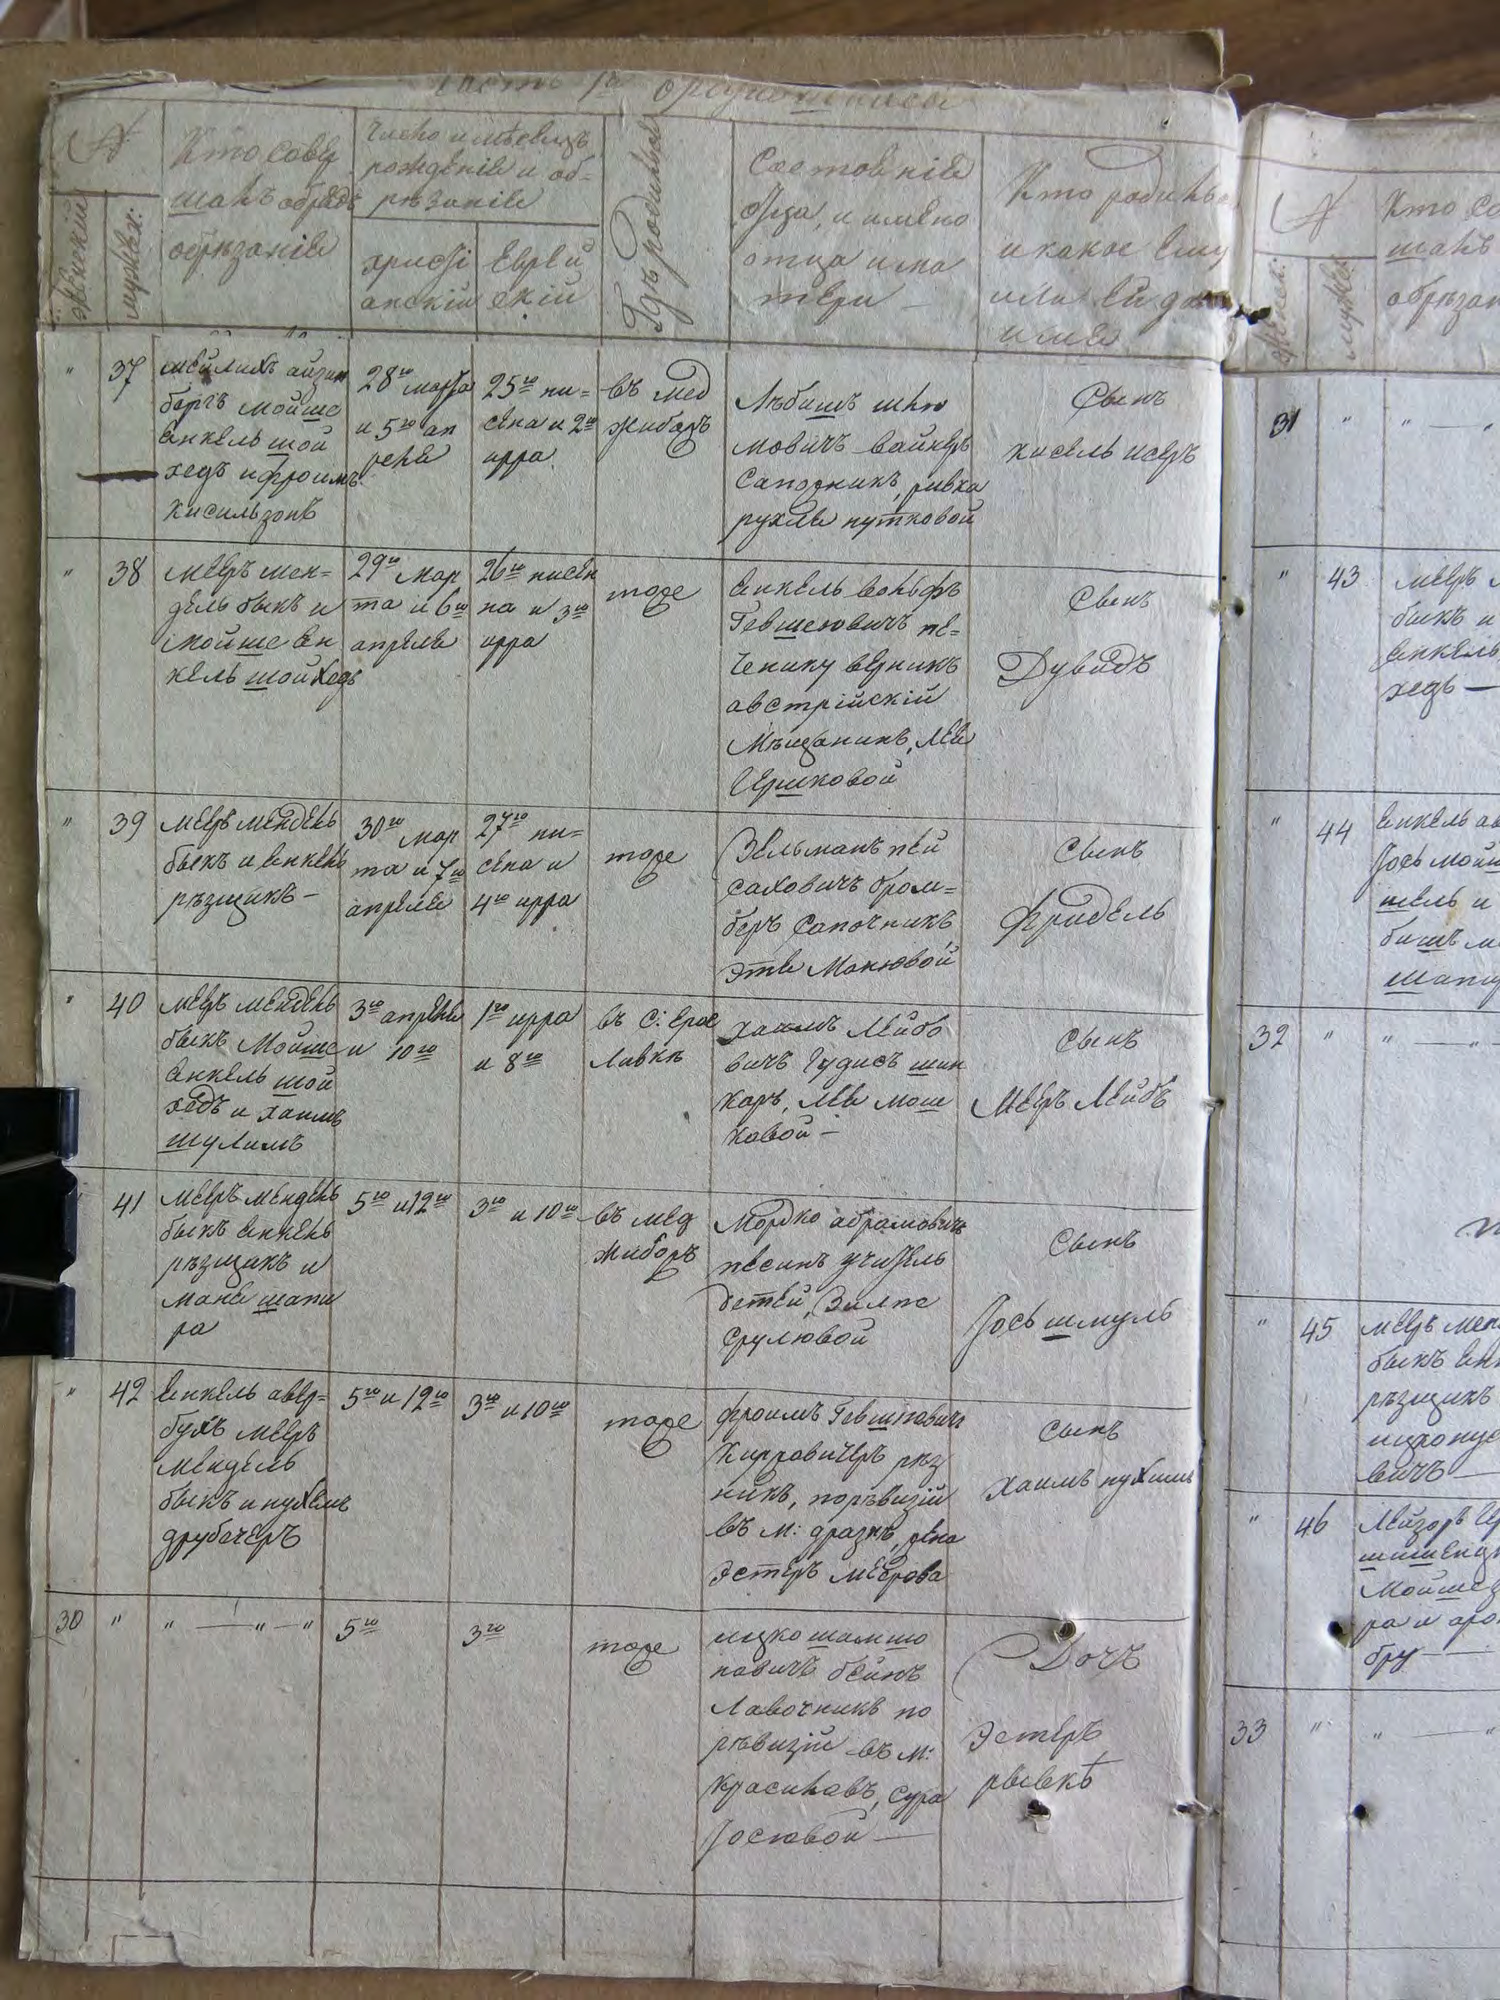 Часть 1я о
№
Кто совер
шалъ обрядъ
обрѣзаніе
Число и мѣсяцъ
рожденіе и об-
рѣзаніе
христі
анскій
Еврей
скій
Гдѣ родился
Состояніе
Отца, и имено
отца и ма
тери —
Кто родился
и какое ему
или ей дано
имя
женскій
мужеск:
" 37
мейлихъ айзин
бергъ мойше
енкель шой
хедъ и фроимъ
кисильзонъ
28го марта
и 5го ап
реля
25го ни=
сена и 2го
ирра
въ мед
жибожъ
Лѣбишъ шлю
мовичъ вайнеръ
Сапожникъ, ривка
рухля нутковой
Сынъ
кисель исеръ
" 38
мееръ мен=
дель быкъ и
мойше ен
кель шойхедъ
29го мар
та и 6го
апреля
26го нисен
на и 3го
ирра
тоже
енкель вольфъ
Гевшеювичъ пе=
австрійскій
Мѣщанинъ, Лея
Гершковой
Сынъ
Дувидъ
" 39
мееръ мендель
быкъ и енкель
рѣзщикъ —
30го мар
та и 7го
апреля
27го ни=
сена и
4го ирра
тоже
Зельманъ пей
саховичъ бром=
беръ Сапочникъ
Этя Манювой
Сынъ
Фридель
" 40
мееръ мендель
быкъ Мойше
енкель шой
хедъ и хаимъ
шулимъ
3го апреля
и 10го
1го ирра
и 8го
въ С: Ерос
Лавкѣ
хаимъ Лейбо
вичъ Гудисъ шин
каръ, Лея мош
ковой —
Сынъ
Мееръ Лейбъ
41
мееръ мендель
быкъ енкель
рѣзщикъ и
маня шапи
ра
5го и 12го
3го и 10го
въ мед
жибожъ
Мордко абрамовичъ
песинъ учитель
детей, Зилпе
Срулювой
Сынъ
Йось шмуль
" 42
Енкель авер=
бухъ мееръ
мендель
быкъ и нухемъ
друбачеръ
5го и 12го
3го и 10го
тоже
фроимъ Гевшіовичъ
рѣз
никъ, поревизій
въ м:
Эстеръ меерова
Сынъ
хаимъ нухимъ
30 " " — " — "
5го
3го
тоже
ицко шамшо
новичъ бейнъ
Лавочникъ по
ревизіи въ м:
Красилавъ, Сура
Йосювой —
Дочъ
Эстеръ
рывкѣ
№
Кто со
шалъ
обрѣзан
женск:
мужеск:
31 " " — "
" 43
мееръ м
быкъ и
енкель
хедъ —
" 44
Енкель ав
Йось мойш
шель и
бишъ м
шапир
32 " " — " —
" 45
мееръ мен
быкъ енк
рѣзщикъ
вичъ —
" 46
Лейзоръ Гер
Мойше з
ра и аро
бру —
33 " " — "